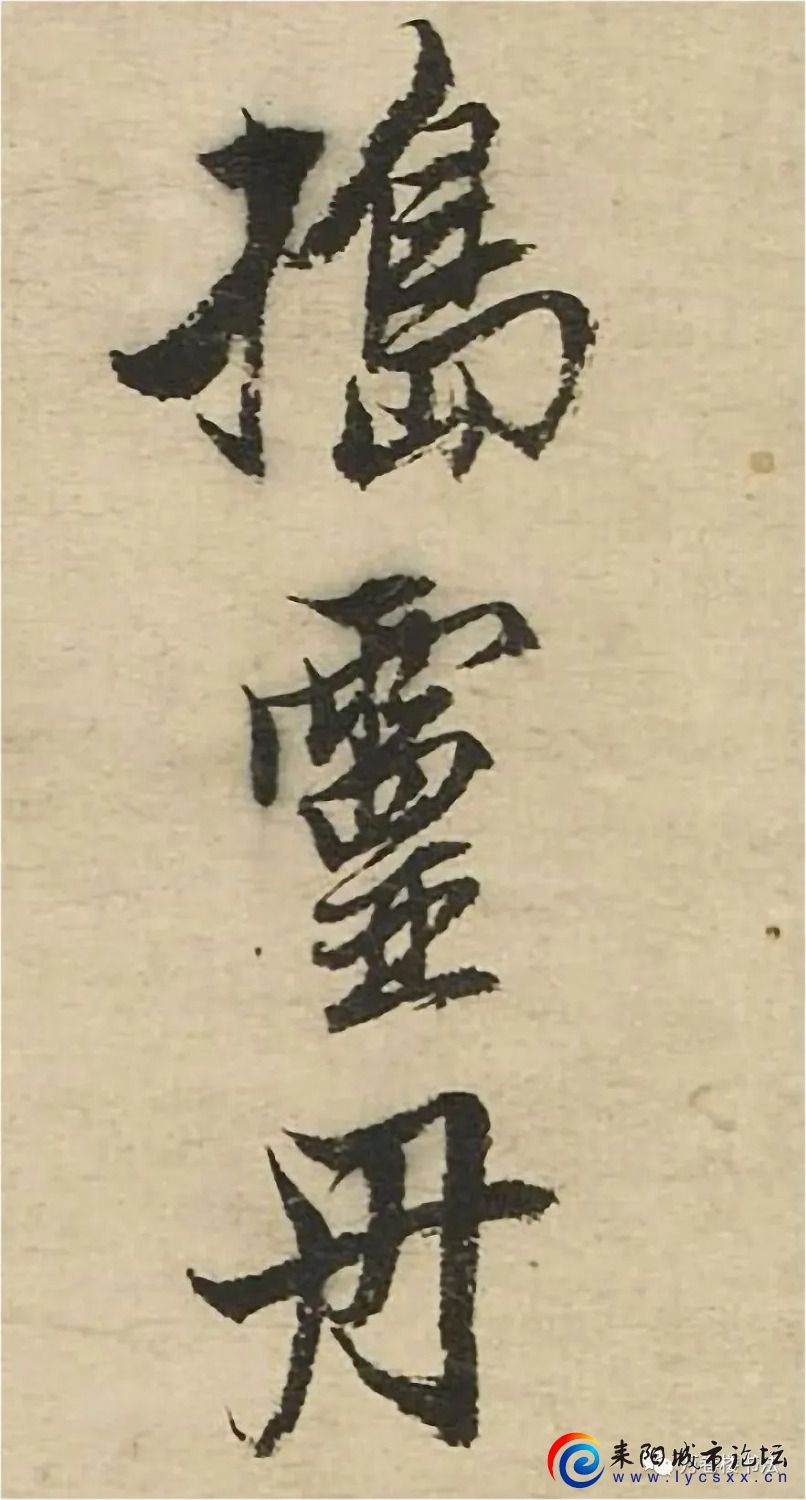 搗靈丹
耒阳城市论坛
www.lycsxx.cn